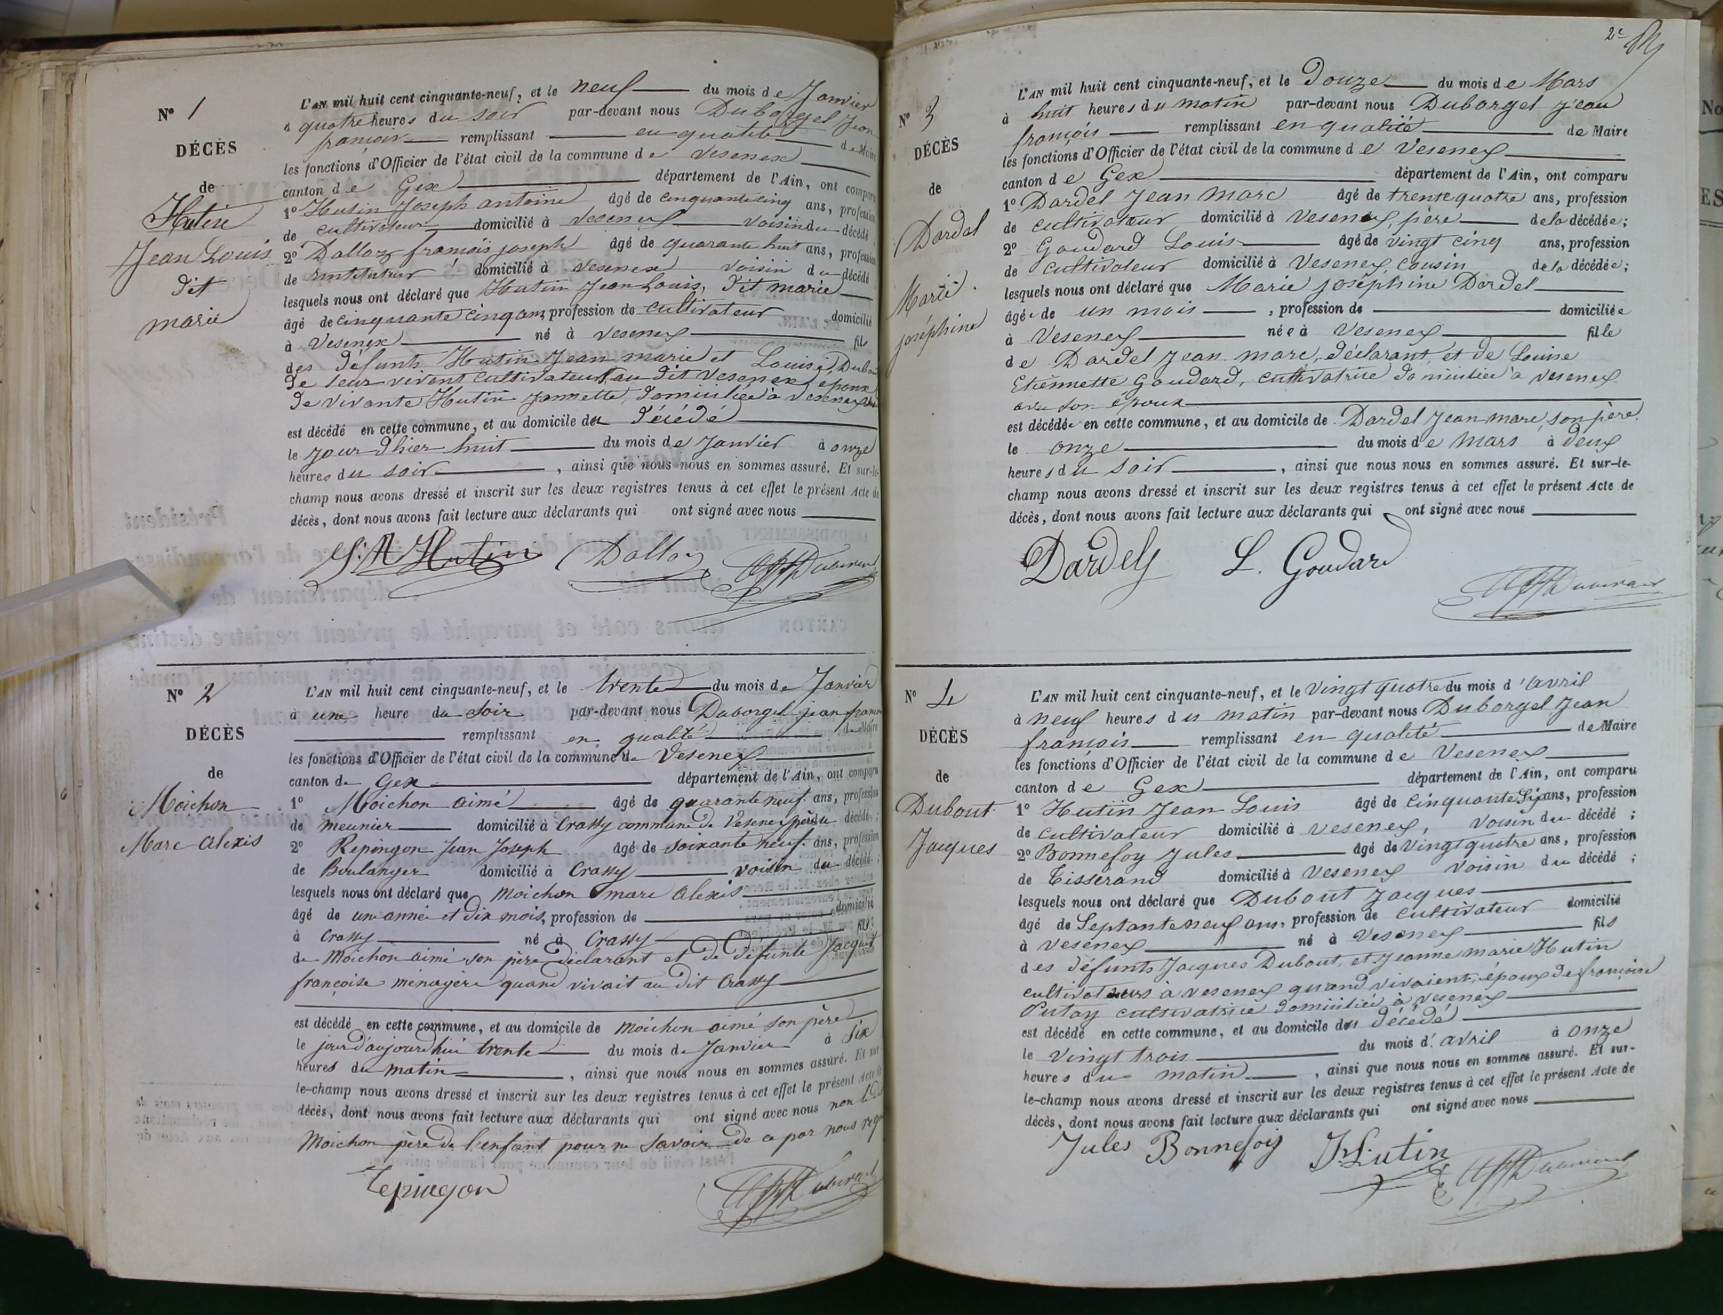 N° 1
DÉCÈS
de
Hutin
Jean Louis
dit
marie
L'AN mil huit cent cinquante-neuf, et le neuf du mois de Janvier
à quatre heures du soir par-devant nous Duborgel Jean
françois remplissant en qualité de Maire
les fonctions d'Officier de l'état civil de la commune de Vesenex
canton de Gex département de l'Ain, ont comparu
1° Hutin Joseph antoine âgé de cinquante cinq ans, profession
de cultivateur domicilié à Vesenex voisin du décédé
2° Dalloz françois joseph âgé de quarante huit ans, profession
de instituteur domicilié à Vesenex voisin du décédé
lesquels nous ont déclaré que Hutin Jean Louis, dit marie
âgé de cinquante cinq ans profession de cultivateur domicilié
à Vesenex né à Vesenex fils
des défunts Hutin Jean marie et Louise
de leur vivant cultivateurs au dit Vesenex, époux
de vivante Hutin Jannette, domiciliée à Vesenex
est décédé en cette commune, et au domicile du décédé
le jour d'hier huit du mois de Janvier à onze
heures du soir, ainsi que nous nous en sommes assuré. Et sur-le-
champ nous avons dressé et inscrit sur les deux registres tenus à cet effet le présent Acte de
décès, dont nous avons fait lecture aux déclarants qui ont signé avec nous
Hutin Dalloz
N° 2
DÉCÈS
de
Moichon
Marc Alexis
L'AN mil huit cent cinquante-neuf, et le trente du mois de Janvier
à une heure du soir par-devant nous Duborgel jean
remplissant en qualité de Maire
les fonctions d'Officier de l'état civil de la commune de Vesenex
canton de Gex département de l'Ain, ont comparu
1° Moichon aimé âgé de quarante neuf ans, profession
de meunier domicilié à Crassy commune de Vesenex père du décédé
2° Repingon Jean Joseph âgé de soixante neuf ans, profession
de Boulanger domicilié à Crassy voisin du décédé
lesquels nous ont déclaré que Moichon marc Alexis
âgé de une année et dix mois, profession de domicilié
à Crassy né à Crassy fils
de Moichon aimé son père déclarant et de défunte
françoise ménagère quand vivait au dit Crassy
est décédé en cette commune, et au domicile de Moichon aimé son père
le jour d'aujourd'hui trente du mois de Janvier à six
heures du matin, ainsi que nous nous en sommes assuré. Et sur
le-champ nous avons dressé et inscrit sur les deux registres tenus à cet effet le présent Acte
décès, dont nous avons fait lecture aux déclarants qui ont signé avec nous non le dit
Moichon père de l'enfant pour ne savoir de ce par nous
Repingon
2e
N° 3
DÉCÈS
de
Dardel
Marie
joséphine
L'AN mil huit cent cinquante-neuf, et le Douze du mois de Mars
à huit heures du matin par-devant nous Duborgel jean
françois remplissant en qualité de Maire
les fonctions d'Officier de l'état civil de la commune de Vesenex
canton de Gex département de l'Ain, ont comparu
1° Dardel Jean Marc âgé de trente quatre ans, profession
de cultivateur domicilié à Vesenex, père de la décédée;
2° Goudard Louis âgé de vingt cinq ans, profession
de cultivateur domicilié à Vesenex, cousin de la décédée;
lesquels nous ont déclaré que Marie joséphine Dardel
âgée de un mois, profession de domiciliée
à Vesenex née à Vesenex fille
de Dardel Jean marc, déclarant et de Louise
Etiennette Goudard, cultivatrice domiciliée à Vesenex
avec son époux
est décédée en cette commune, et au domicile de Dardel Jean marc, son père
le onze du mois de Mars à deux
heures du soir, ainsi que nous nous en sommes assuré. Et sur-le-
champ nous avons dressé et inscrit sur les deux registres tenus à cet effet le présent Acte de
décès, dont nous avons fait lecture aux déclarants qui ont signé avec nous
Dardel L. Goudard
N° 4
DÉCÈS
de
Dubout
Jacques
L'AN mil huit cent cinquante-neuf, et le Vingt quatre du mois d'avril
à neuf heures du matin par-devant nous Duborgel Jean
françois remplissant en qualité de Maire
les fonctions d'Officier de l'état civil de la commune de Vesenex
canton de Gex département de l'Ain, ont comparu
1° Hutin Jean Louis âgé de cinquante six ans, profession
de cultivateur domicilié à Vesenex, voisin du décédé;
2° Bonnefoy Jules âgé de vingt quatre ans, profession
de Tisserand domicilié à Vesenex voisin du décédé;
lesquels nous ont déclaré que Dubout Jacques
âgé de Septante neuf ans, profession de cultivateur domicilié
à Vesenex né à Vesenex fils
des défunts Jacques Dubout, et Jeanne marie Hutin
cultivateurs à Vesenex quand vivaient, époux de françoise
Putoy cultivatrice domiciliée à Vesenex
est décédé en cette commune, et au domicile du décédé
le vingt trois du mois d'avril à onze
heures du matin, ainsi que nous nous en sommes assuré. Et sur-
le-champ nous avons dressé et inscrit sur les deux registres tenus à cet effet le présent Acte de
décès, dont nous avons fait lecture aux déclarants qui ont signé avec nous
Jules Bonnefoy J. L. Hutin